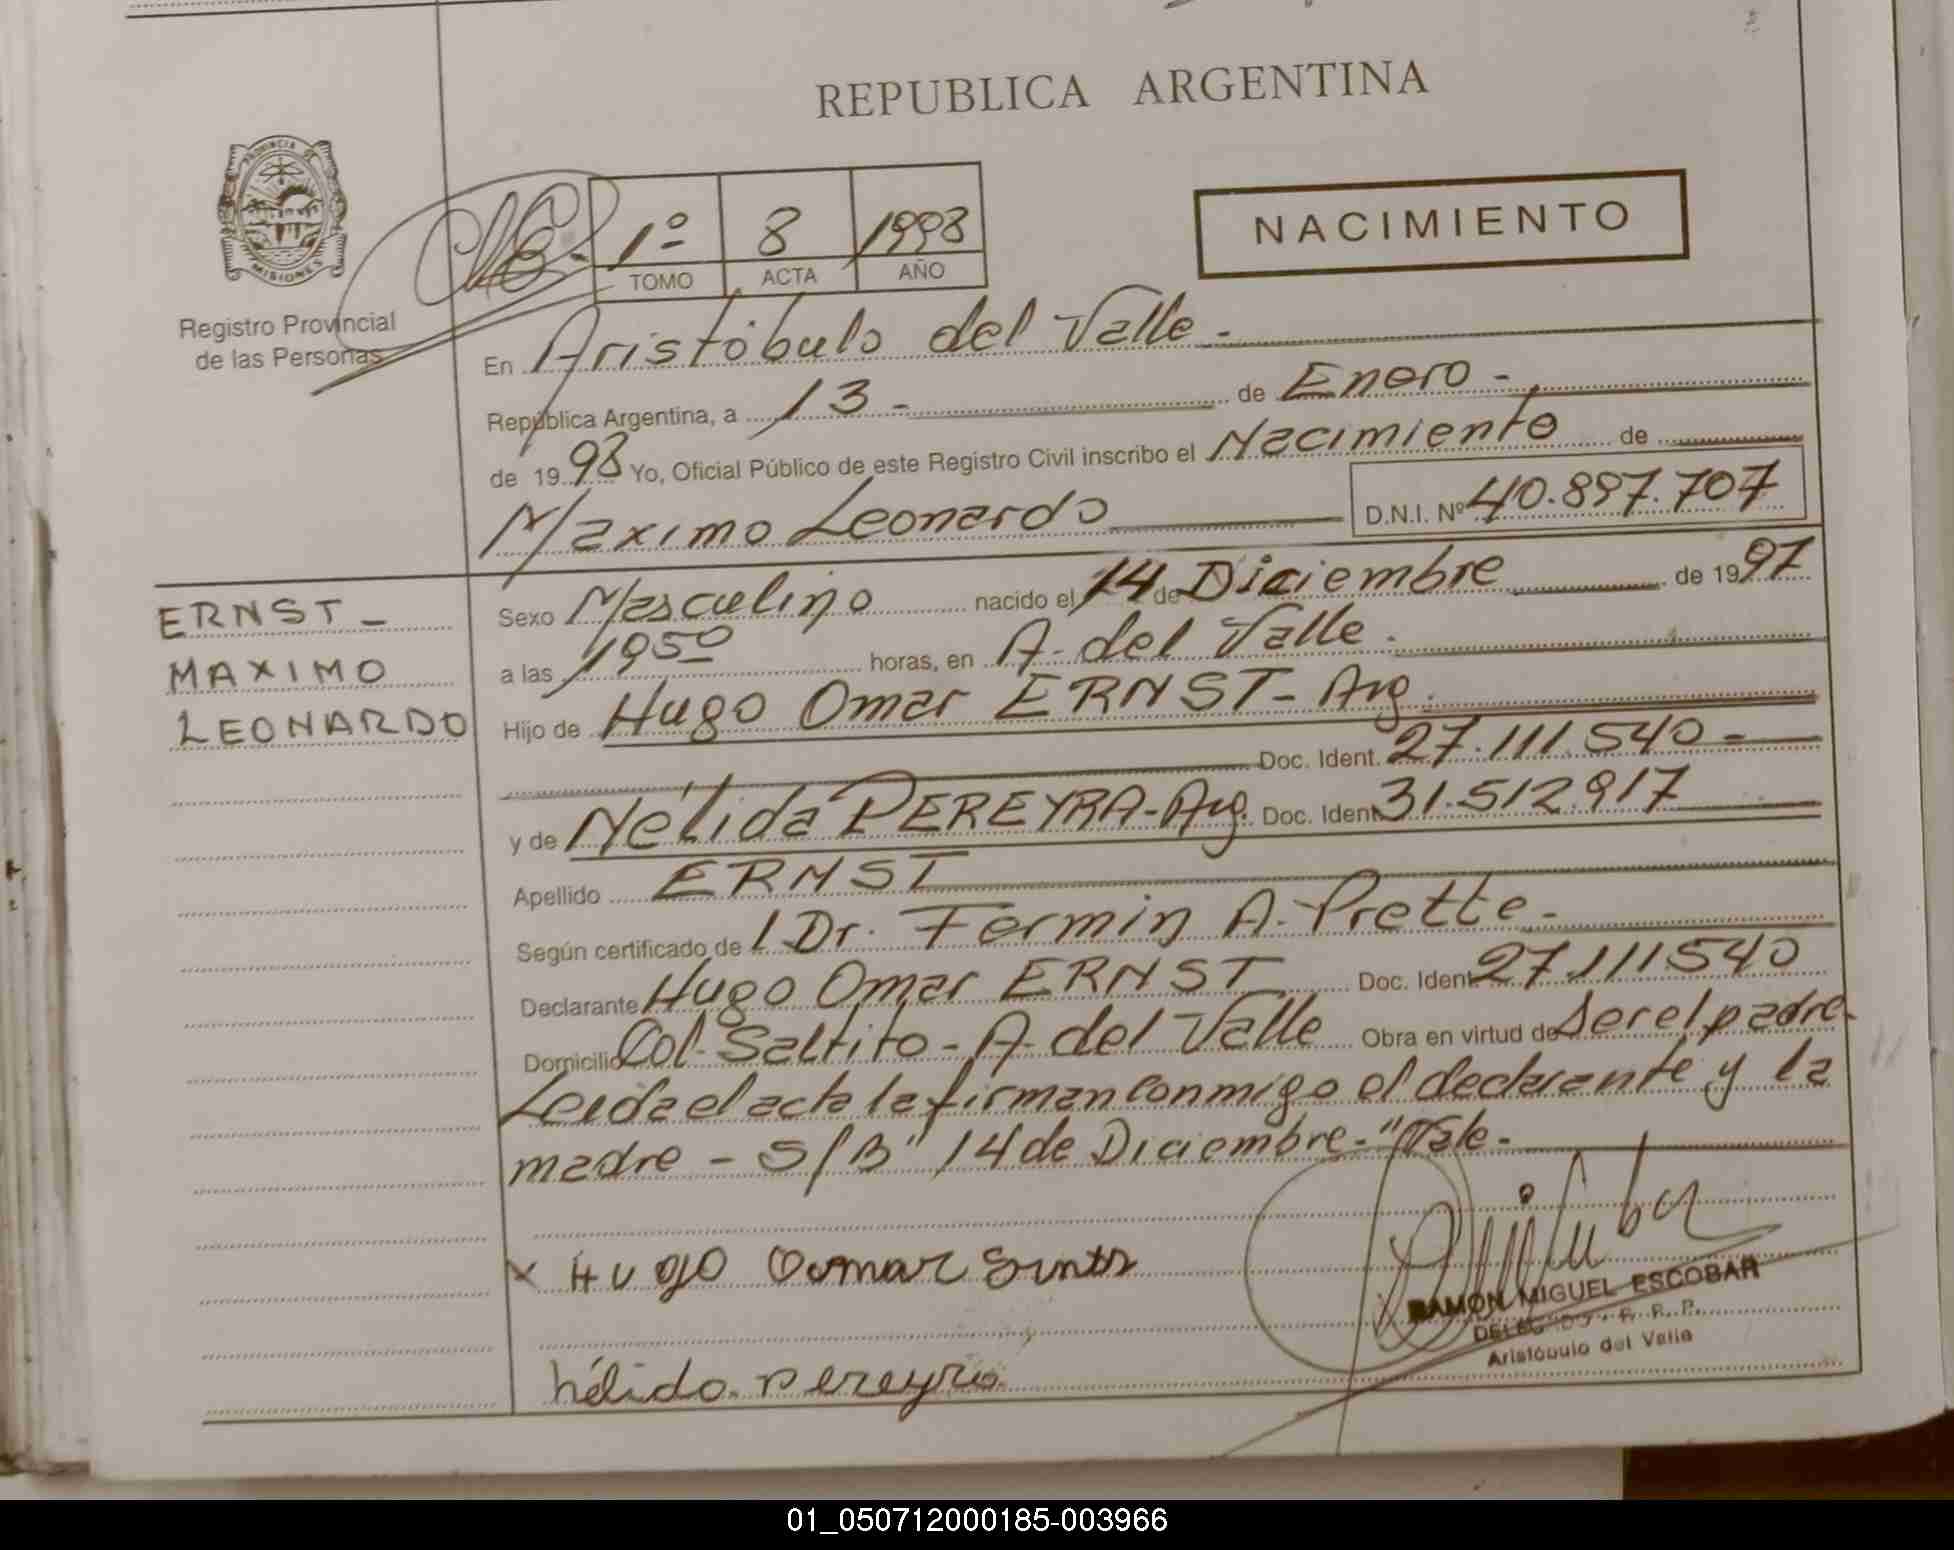 REPUBLICA ARGENTINA
PROVINCIA DE MISIONES
Registro Provincial
de las Personas
1º 8 1998
TOMO ACTA AÑO
NACIMIENTO
En Aristóbulo del Valle.-
República Argentina, a 13- de Enero-
de 1998 Yo, Oficial Público de este Registro Civil inscribo el Nacimiento de
Maximo Leonardo D.N.I. Nº 40.897.707
ERNST-
MAXIMO
LEONARDO
Sexo Masculino nacido el 14 de Diciembre de 1997
a las 1950 horas, en A. del Valle.
Hijo de Hugo Omar ERNST- Arg.
Doc. Ident. 27.111.540-
y de Nélida PEREYRA-Arg. Doc. Ident. 31.512.917
Apellido ERNST
Según certificado de Dr. Fermin A. Prette-
Declarante Hugo Omar ERNST Doc. Ident. 27.111.540
Domicilio Col. Saltito- A. del Valle Obra en virtud de Ser el padre-
Leida el acta la firman conmigo el declarante y la
madre - S/B" 14 de Diciembre-"Vale-
x HUGO Oomar
nélida pereyra
RAMON MIGUEL ESCOBAR
Aristóbulo del Valle
01_050712000185-003966